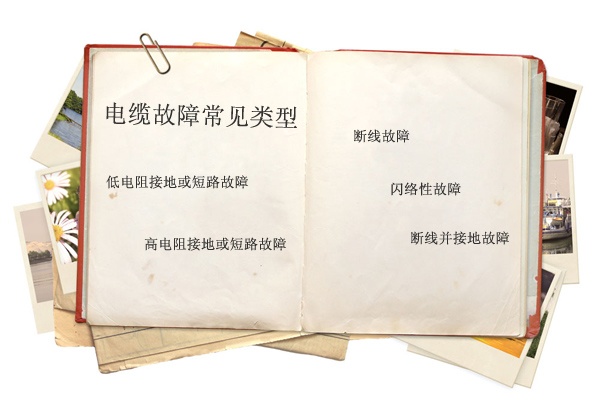 电缆故障常见类型
低电阻接地或短路故障
高电阻接地或短路故障
断线故障
闪络性故障
断线并接地故障